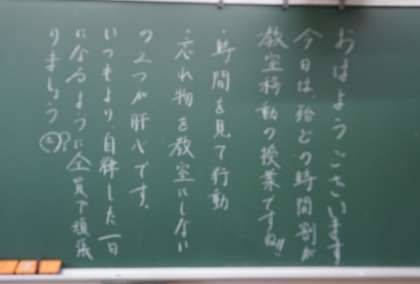 おはようございます
今日は、殆どの時間割が
教室移動の授業ですね!!
・時間を見て行動
・忘れ物を教室にしない
の2つが肝心です。
いつもより、自律した一日
になるように全員で頑張
りましょう